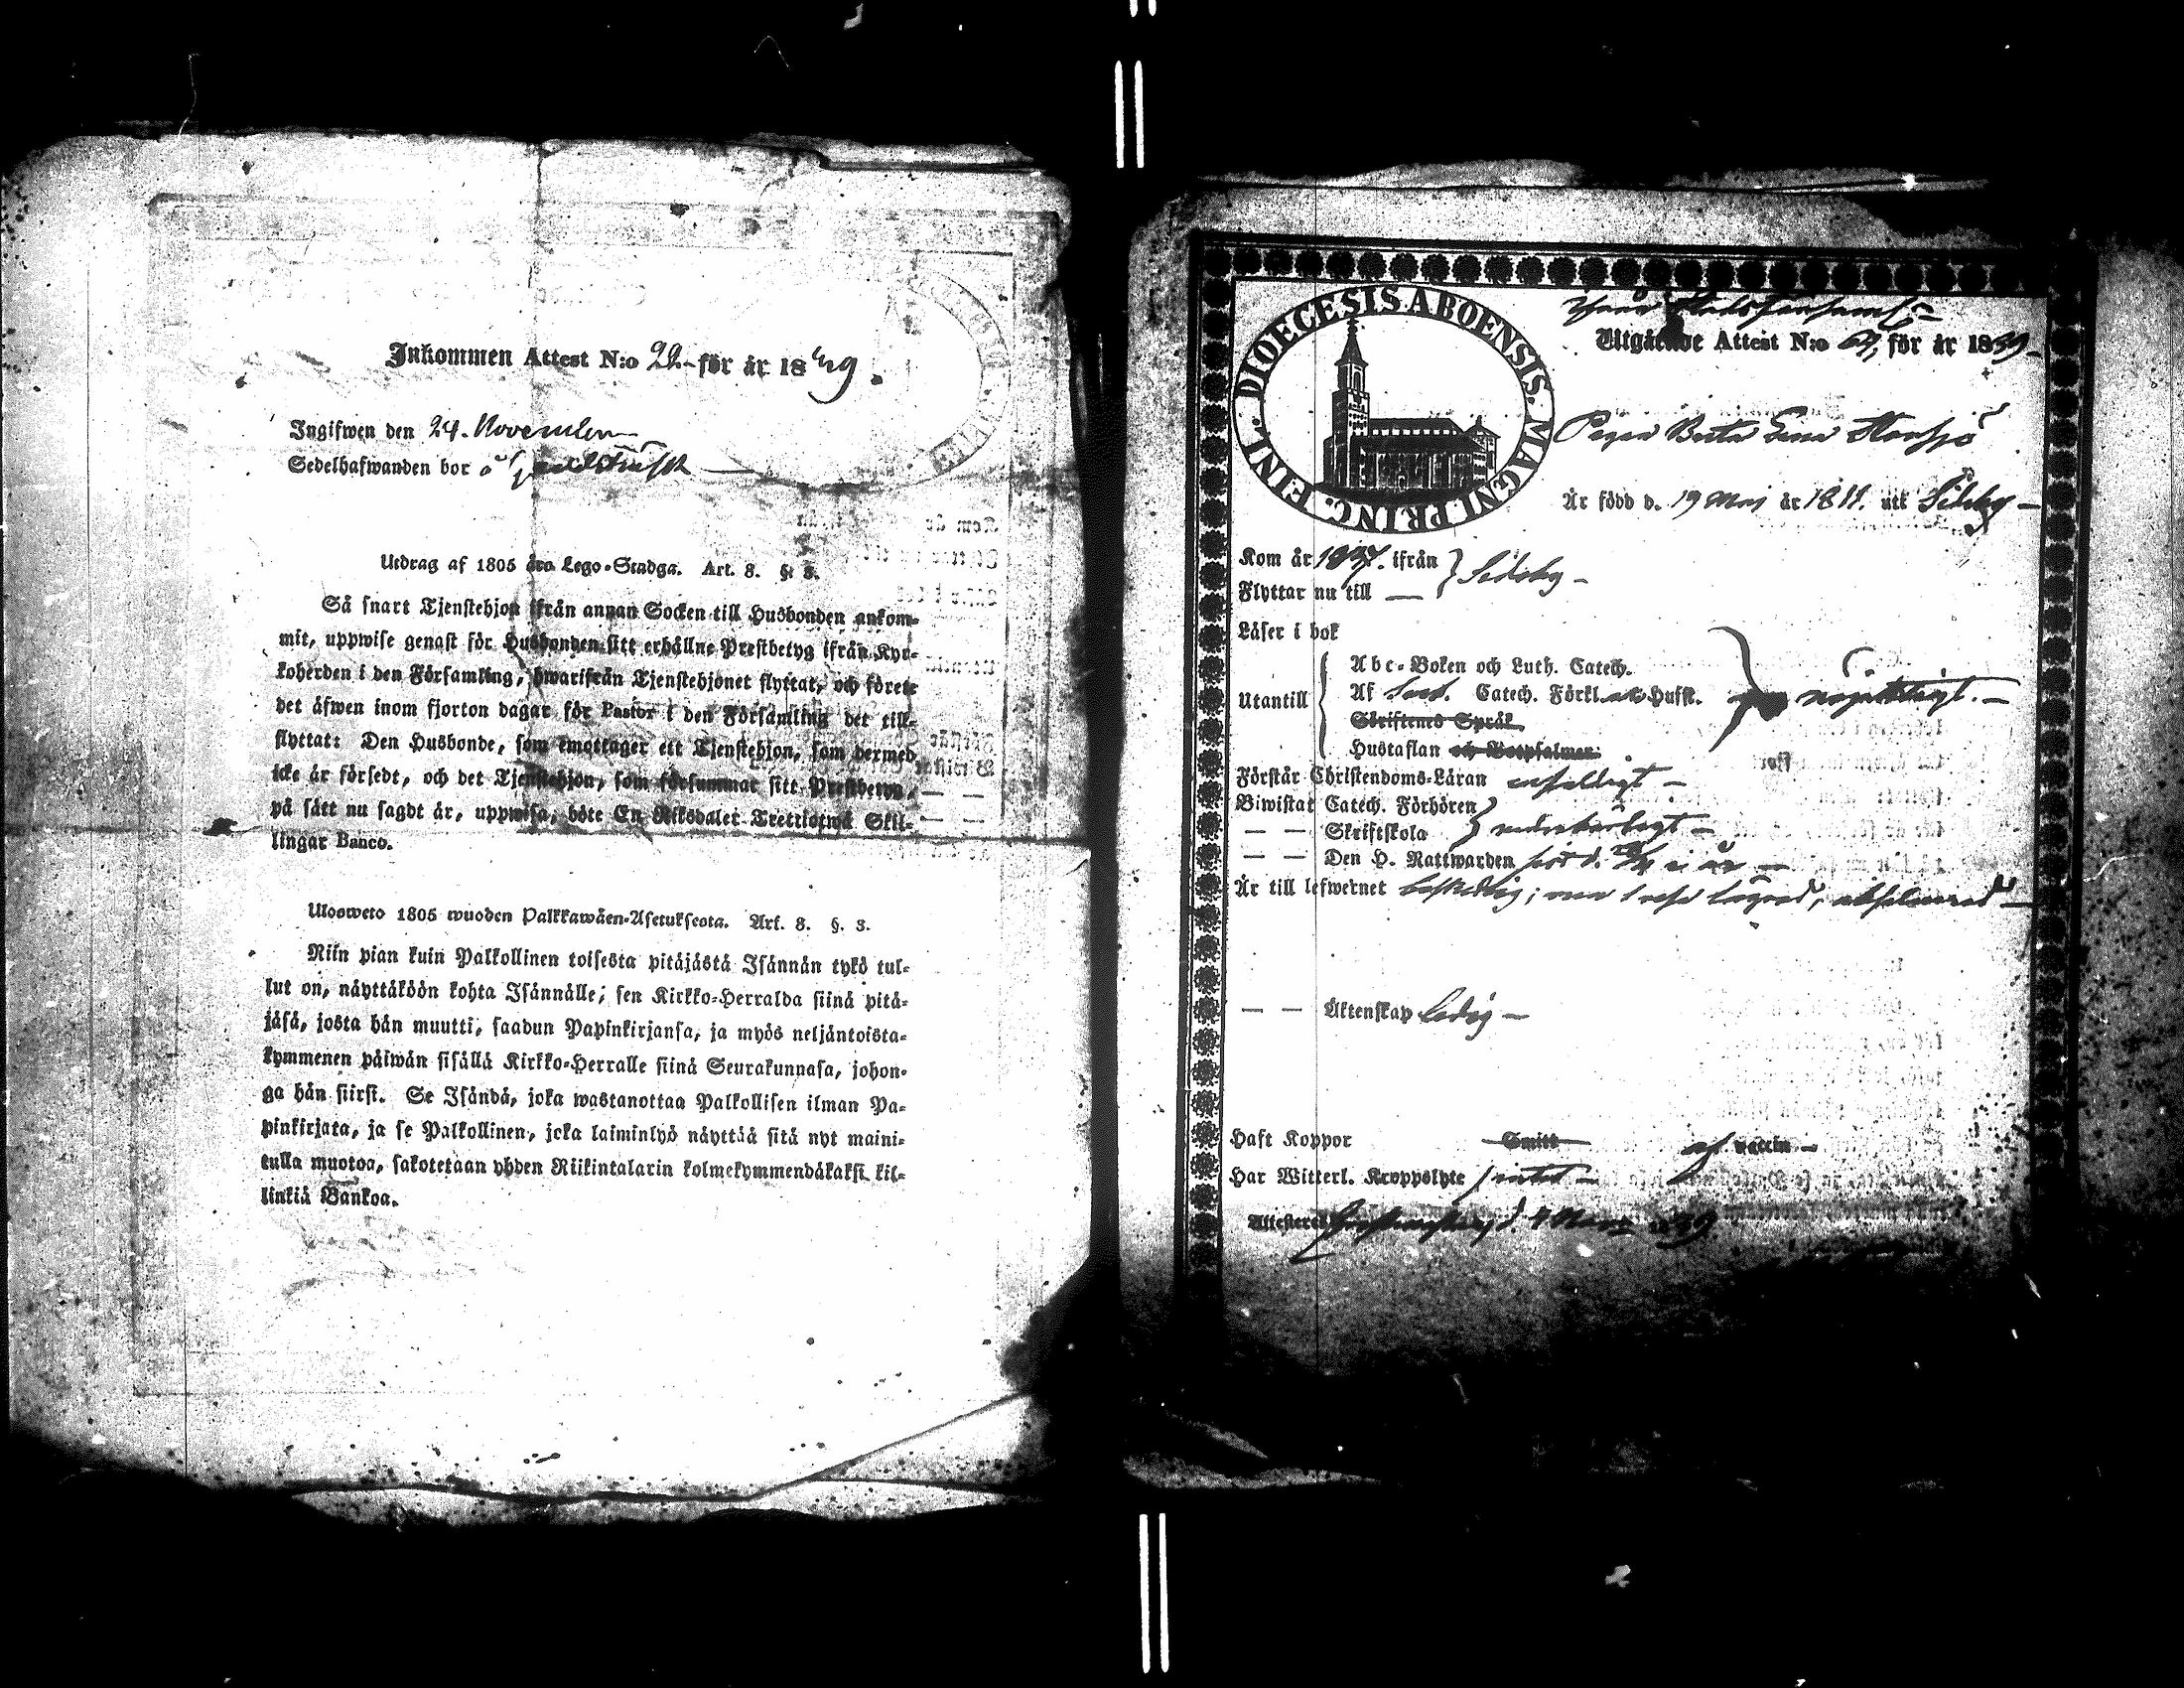 Inkommen Attest N:o 22. för år 18
Ingifwen den 24. November
Sedelhafwanden bor å
Utdrag af 1805 års Lego-Stadga. Art. 8. §: 3.
Så snart Tjenstehjon ifrån annan Socken till Husbonden ankom-
mit, uppwise genast för Husbonden sitt erhållne Prestbetyg ifrån Kyr-
koherden i den Församling, hwarifrån Tjenstehjonet flyttat, och förete
det äfwen inom fjorton dagar för Pastor i den Församling det till-
flyttat: Den Husbonde, som emottager ett Tjenstehjon, som dermed
icke är försedt, och det Tjenstehjon, som försummar sitt Prestbetyg,
på sätt nu sagdt är, uppwisa, böte En Riksdaler Trettiotwå Skil-
lingar Banco.
Ulosweto 1805 wuoden Palkkawäen-Asetuksesta. Art. 8. §. 3.
Niin pian kuin Palkollinen toisesta pitäjästä Isännän tykö tul-
lut on, näyttäköön kohta Isännälle, sen Kirkko-Herralda siinä pitä-
jäsä, josta hän muutti, saadun Papinkirjansa, ja myös neljäntoista-
kymmenen päiwän sisällä Kirkko-Herralle siinä Seurakunnasa, johon-
ga hän siirsi. Se Isändä, joka wastanottaa Palkollisen ilman Pa-
pinkirjata, ja se Palkollinen, joka laiminlyö näyttää sitä nyt maini-
tulla muotoa, sakotetaan yhden Riikintalarin kolmekymmendäkaksi kil-
linkiä Bankoa.
DIOECESIS ABOENSIS. MAGNI PRINC. FINL.
Utgående Attest N:o för år 1839
Pigan
Är född d. 19 Maj år 1811. uti Sideby
Kom år 1837. ifrån } Sideby
Flyttar nu till
Läser i bok
Utantill
Abc-Boken och Luth. Catech.
Af Catech. Förkl. Hufst. nöjaktigt.
Skriftens Språk
Hustaflan och Botpsalmer.
Förstår Christendoms-Läran enfaldigt
Biwistat Catech. Förhören
— — Skriftskola
— — Den H. Nattwarden i år
Är till lefwernet
— — Äktenskap ledig
Haft Koppor Smitt af vaccin
Har Witterl. Kroppslyte intet
Attesterar d. 4 1839